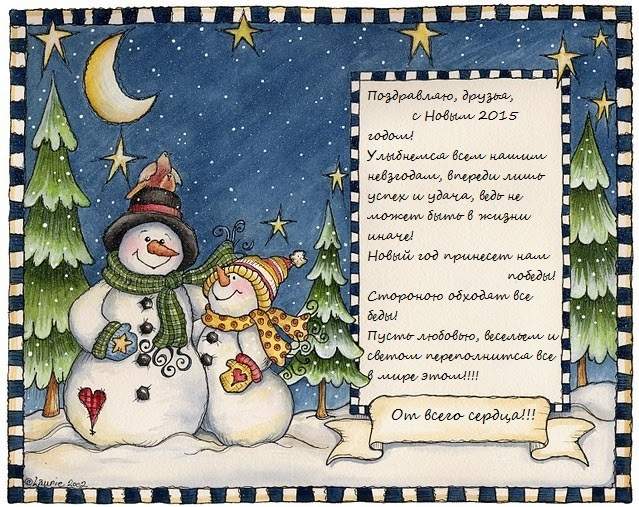 Поздравляю, друзья,
с Новым 2015
годом!
Улыбнемся всем нашим
невзгодам, впереди лишь
успех и удача, ведь не
может быть в жизни
иначе!
Новый год принесет нам
победы!
Стороною обходят все
беды!
Пусть любовью, весельем и
светом переполнится все
в мире этом!!!!
От всего сердца!!!
©Laurie 2002